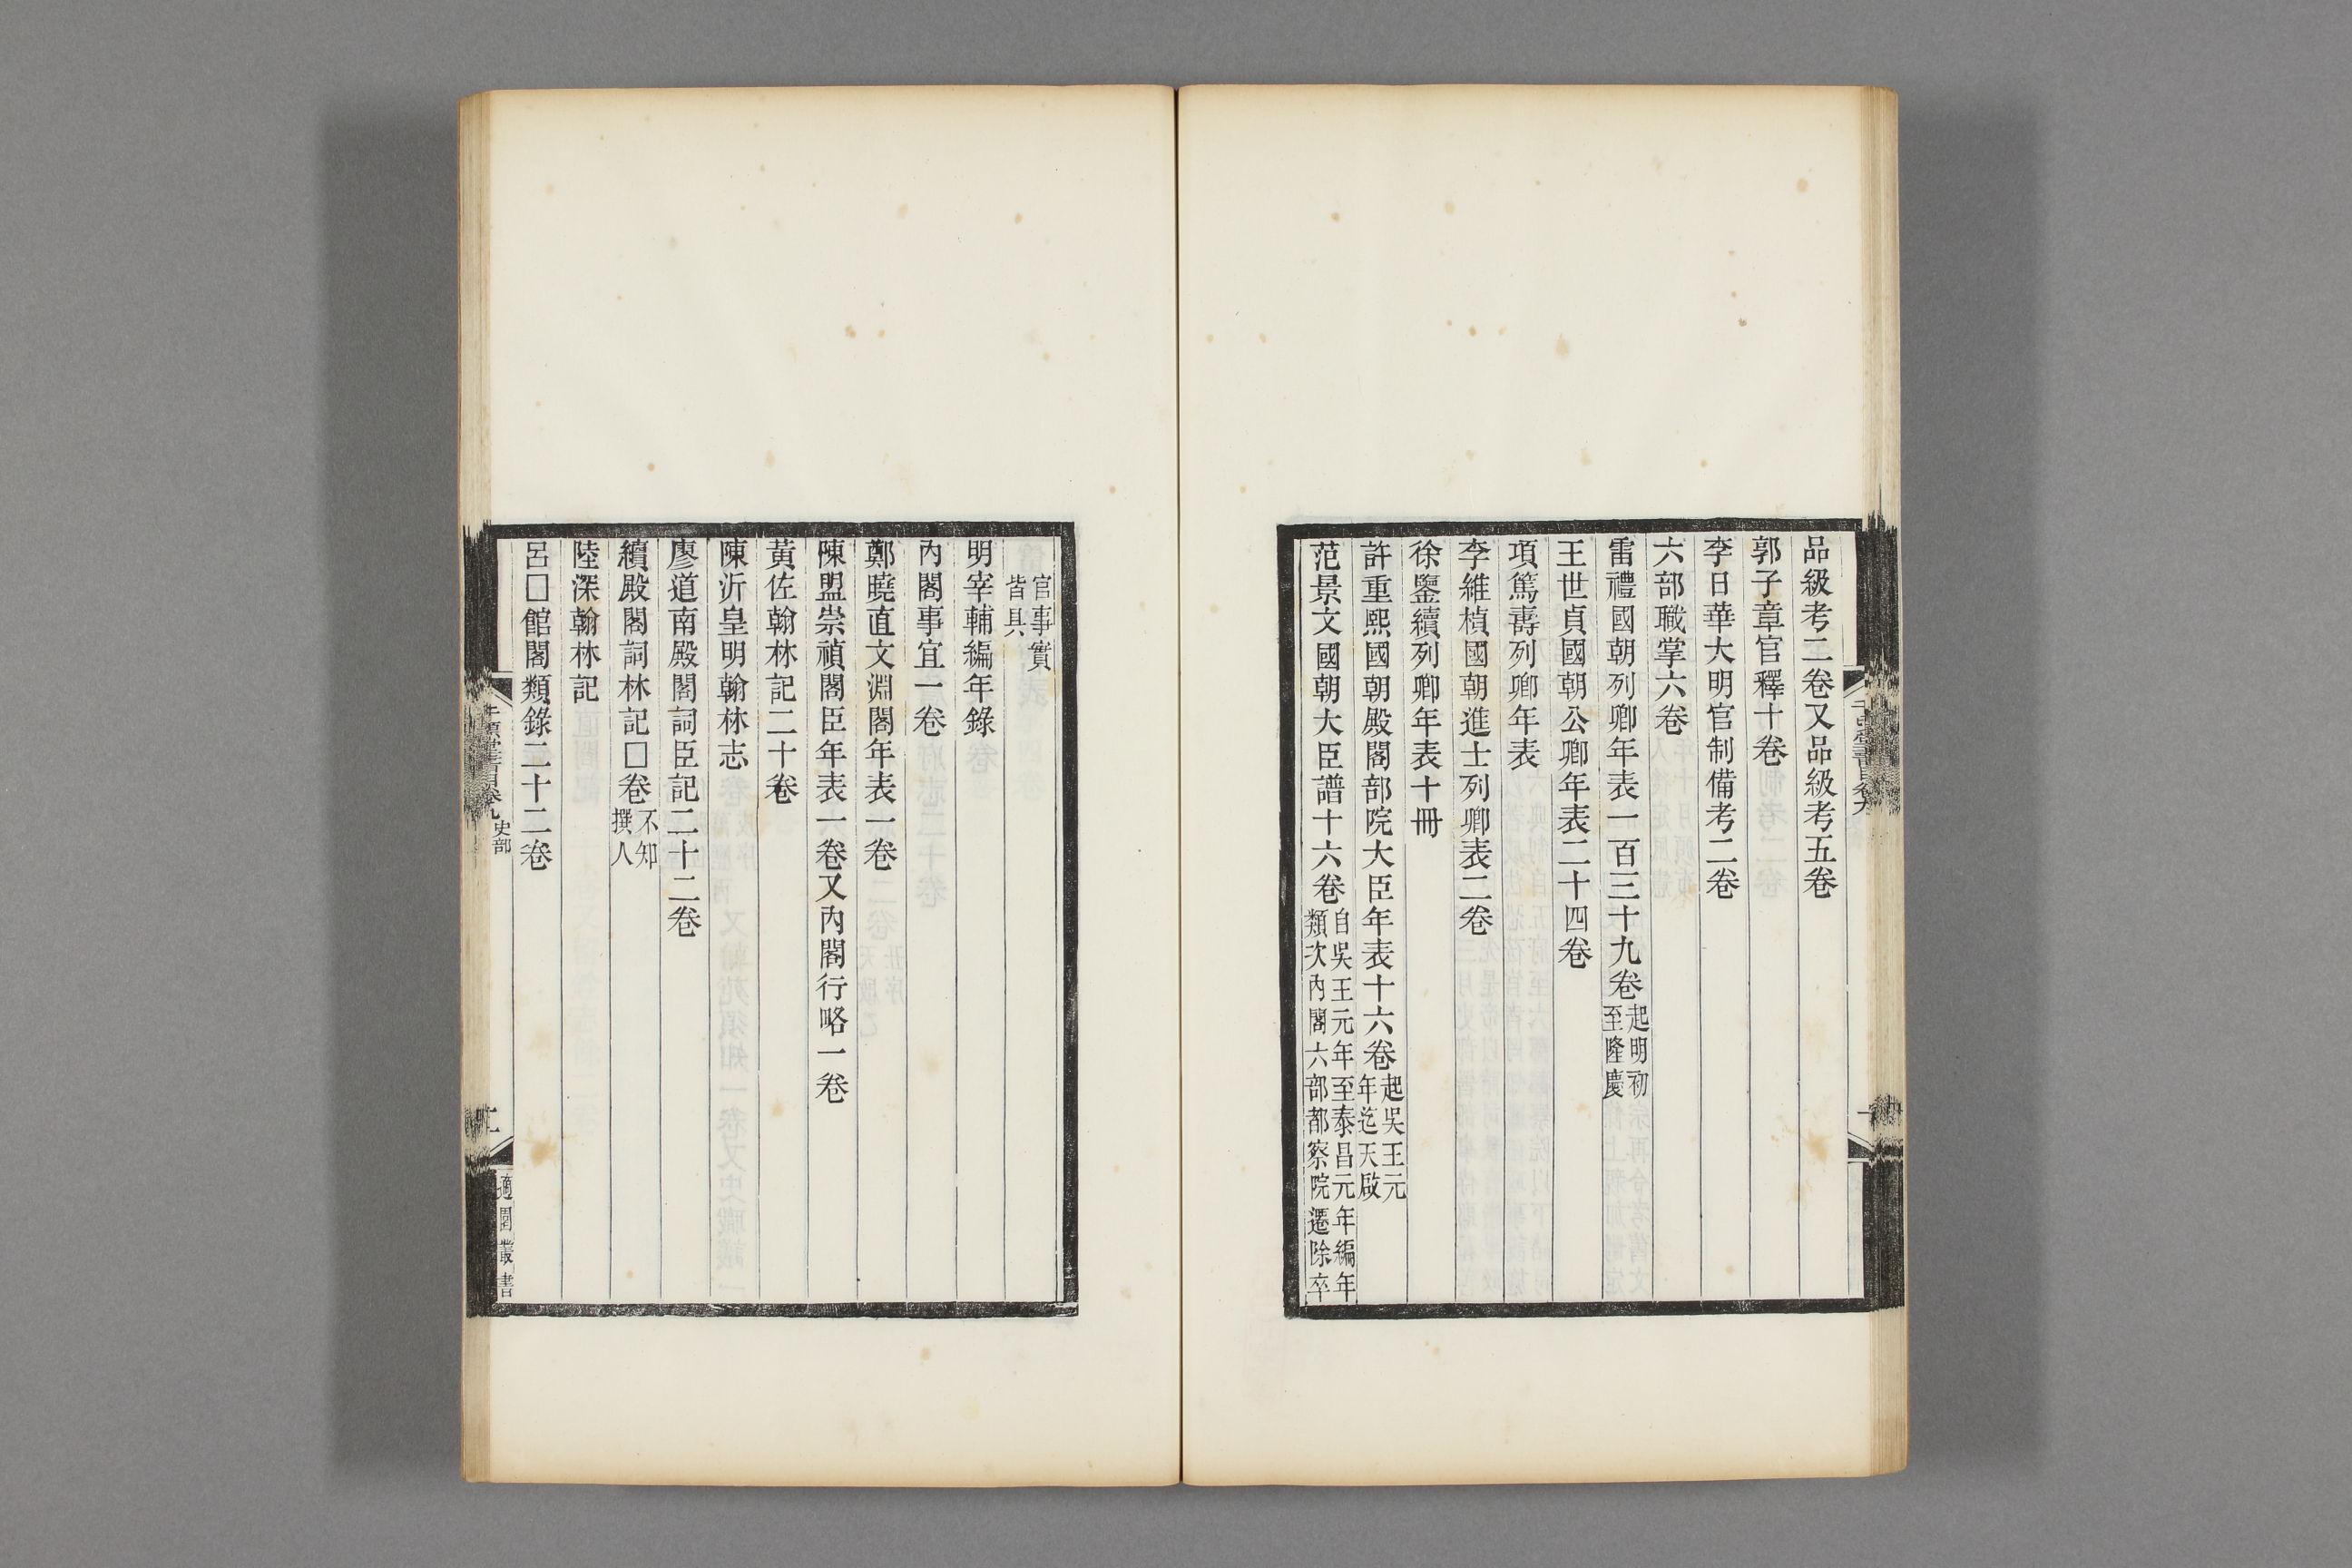 品級考二卷又品級考五卷
郭子章官釋十卷
李日華大明官制備考二卷
六部職掌六卷
雷禮國朝列卿年表一百三十九卷起明初至隆慶
王世貞國朝公卿年表二十四卷
項篤壽列卿年表
李維楨國朝進士列卿表二卷
徐鑒續列卿年表十冊
許重熙國朝殿閣部院大臣年表十六卷起吳王元年迄天啟
范景文國朝大臣譜十六卷自吳王元年至泰昌元年編年類次內閣六部都察院遷除卒
官事實皆具
明宰輔編年錄
內閣事宜一卷
鄭曉直文淵閣年表一卷
陳盟崇禎閣臣年表一卷又內閣行略一卷
黃佐翰林記二十卷
陳沂皇明翰林志
廖道南殿閣詞臣記二十二卷
續殿閣詞林記□卷不知撰人
陸深翰林記
呂□館閣類錄二十二卷
千頃堂書目卷九 史部
適園叢書